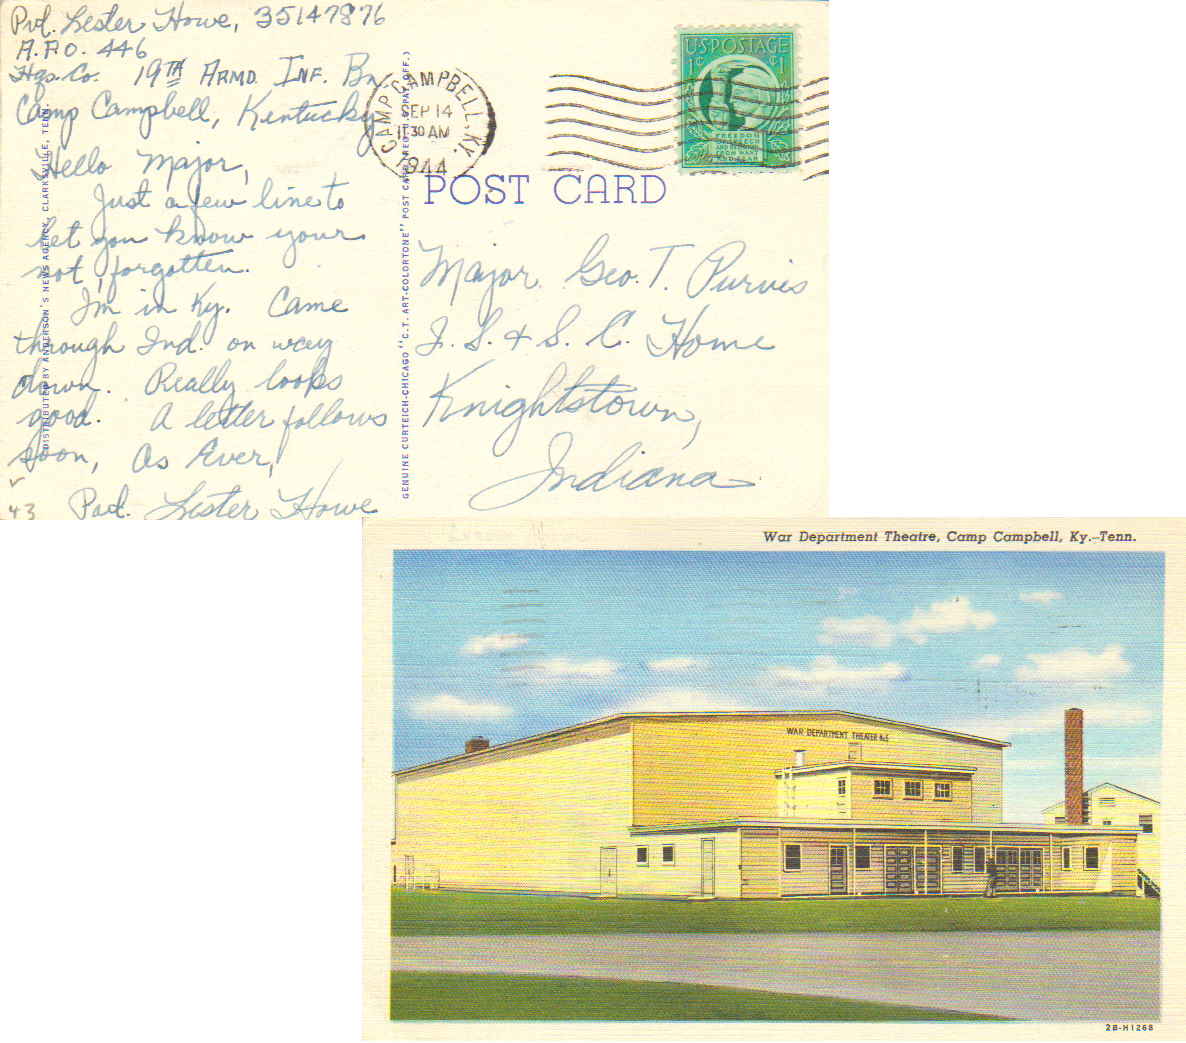 Pvt. Lester Howe, 35147876
A.P.O. 446
Hqs. Co. 19TH ARMD. INF. Bn
Camp Campbell, Kentucky
Hello Major,
Just a few line to
let you know your
not forgotten.
I'm in Ky. Came
through Ind. on way
down. Really looks
good. A letter follows
soon, As Ever,
Pvt. Lester Howe
43
DISTRIBUTED BY ANDERSON'S NEWS AGENCY, CLARKSVILLE, TENN.
GENUINE CURTEICH-CHICAGO "C.T. ART-COLORTONE" POST CARD (REG. U.S. PAT. OFF.)
CAMP CAMPBELL, KY.
SEP 14
11 30 AM
1944
U.S. POSTAGE
1¢ ¢1
FREEDOM
OF SPEECH
AND RELIGION
FROM WANT
AND FEAR
POST CARD
Major Geo. T. Purvis
I. S. & S. C. Home
Knightstown,
Indiana
War Department Theatre, Camp Campbell, Ky.-Tenn.
WAR DEPARTMENT THEATER No.5
2B-H1268